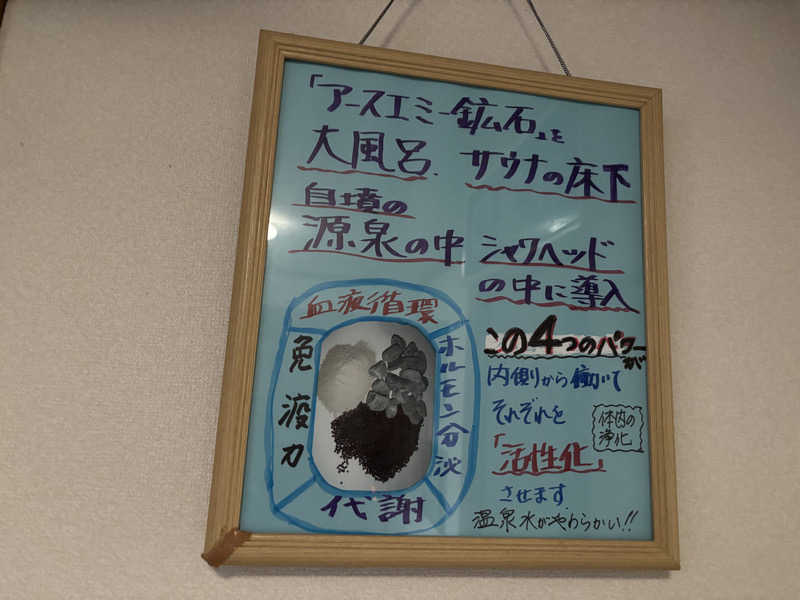 「アースエミー鉱石」を
大風呂、サウナの床下
自墳の
源泉の中 シャワヘッド
の中に導入
血液循環
免疫力
ホルモン分泌
代謝
この4つのパワーが
内側から働いて
それぞれを
体内の
浄化
「活性化」
させます
温泉水がやわらかい!!